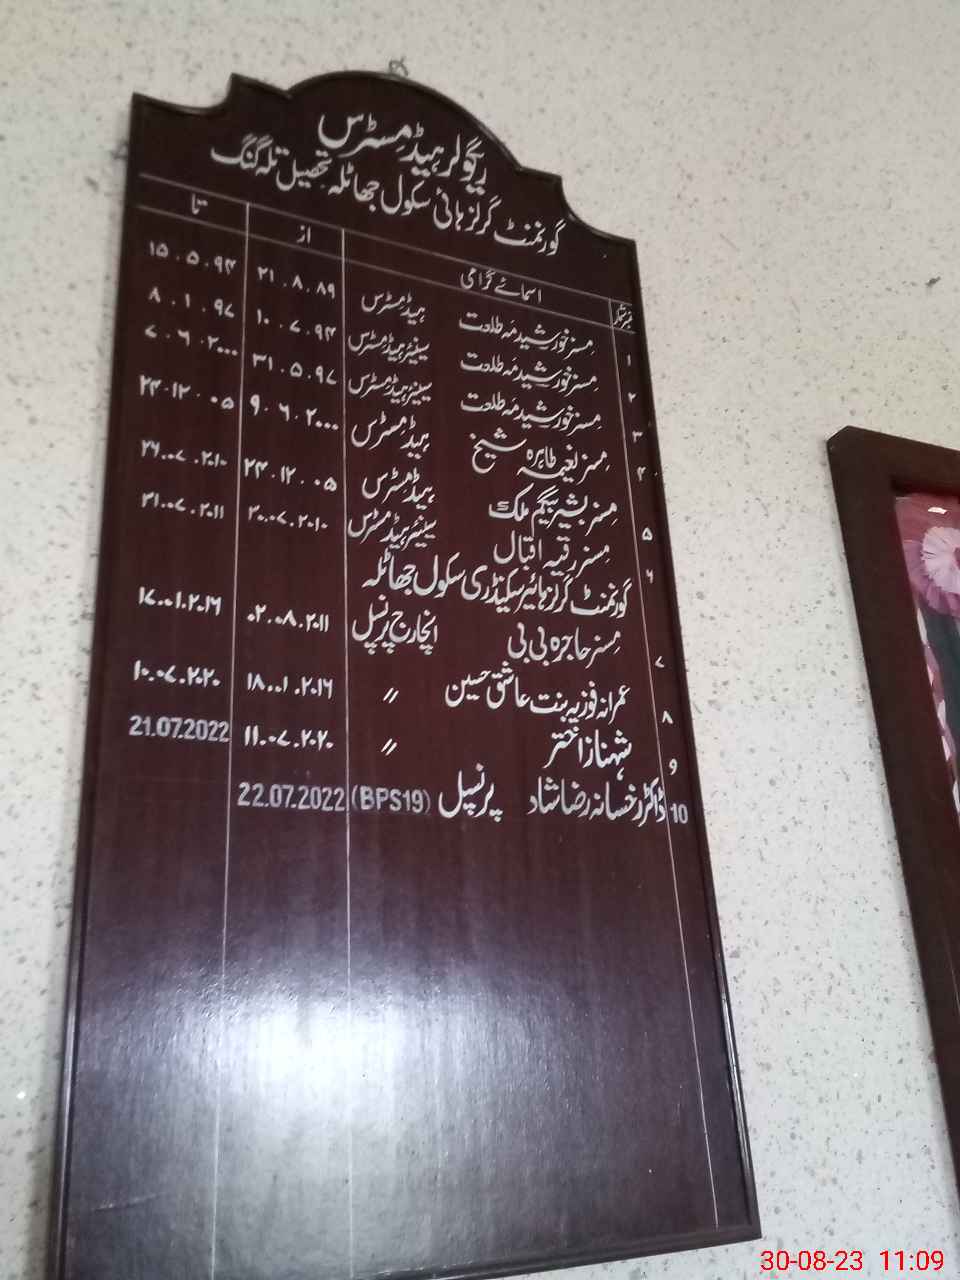 ریگولر ہیڈ مسٹرس
گورنمنٹ گرلز ہائی سکول جھاٹلہ تحصیل تلہ گنگ
نمبر شمار اسمائے گرامی از تا
۱ مسز خورشید مہ طلعت ہیڈ مسٹرس ۲۱.۸.۸۹ ۱۵.۵.۹۴
۲ مسز خورشید مہ طلعت سینئر ہیڈ مسٹرس ۱۰.۷.۹۴ ۸.۱.۹۷
۳ مسز خورشید مہ طلعت سینئر ہیڈ مسٹرس ۳۱.۵.۹۷ ۷.۶.۲۰۰۰
۴ مسز نعیمہ طاہرہ شیخ ہیڈ مسٹرس ۹.۶.۲۰۰۰ ۲۳.۱۲.۰۵
۵ مسز بشیر بیگم ملک ہیڈ مسٹرس ۲۴.۱۲.۰۵ ۲۶.۰۷.۲۰۱۰
۶ مسز رقیہ اقبال سینئر ہیڈ مسٹرس ۲۰.۰۷.۲۰۱۰ ۳۱.۰۷.۲۰۱۱
گورنمنٹ گرلز ہائیر سیکنڈری سکول جھاٹلہ
۷ مسز حاجرہ بی بی انچارج پرنسپل ۰۲.۰۸.۲۰۱۱ ۱۷.۰۱.۲۰۱۶
۸ عمرانہ فوزیہ بنت عاشق حسین 〃 ۱۸.۰۱.۲۰۱۶ ۱۰.۰۷.۲۰۲۰
۹ شہناز اختر 〃 ۱۱.۰۷.۲۰۲۰ 21.07.2022
10 ڈاکٹر رخسانہ رضا شاد پرنسپل (BPS19) 22.07.2022
30-08-23 11:09